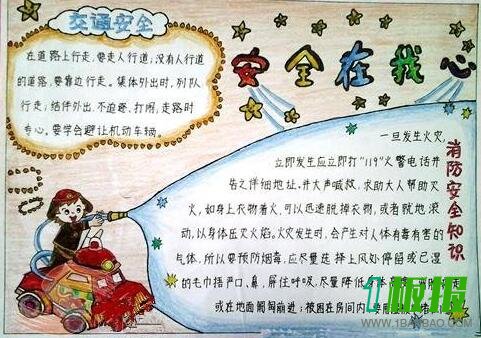 交通安全
在道路上行走,要走人行道;没有人行道
的道路,要靠边行走。集体外出时,列队
行走;结伴外出,不追逐、打闹,走路时
要专心。要学会避让机动车辆。
安全在我心
消防安全知识
一旦发生火灾,
立即发生应立即打"119"火警电话并
告之详细地址,并大声喊救,求助大人帮助灭
火,如身上衣物着火,可以迅速脱掉衣物,或者就地滚
动,以身体压灭火焰。火灾发生时,会产生对人体有毒有害的
气体,所以要预防烟毒,应尽量选择上风处停留或已湿
的毛巾捂严口、鼻,屏住呼吸,尽量降低
或在地面匍匐前进;被困在房间内
1板报
WWW.1BANBAO.COM